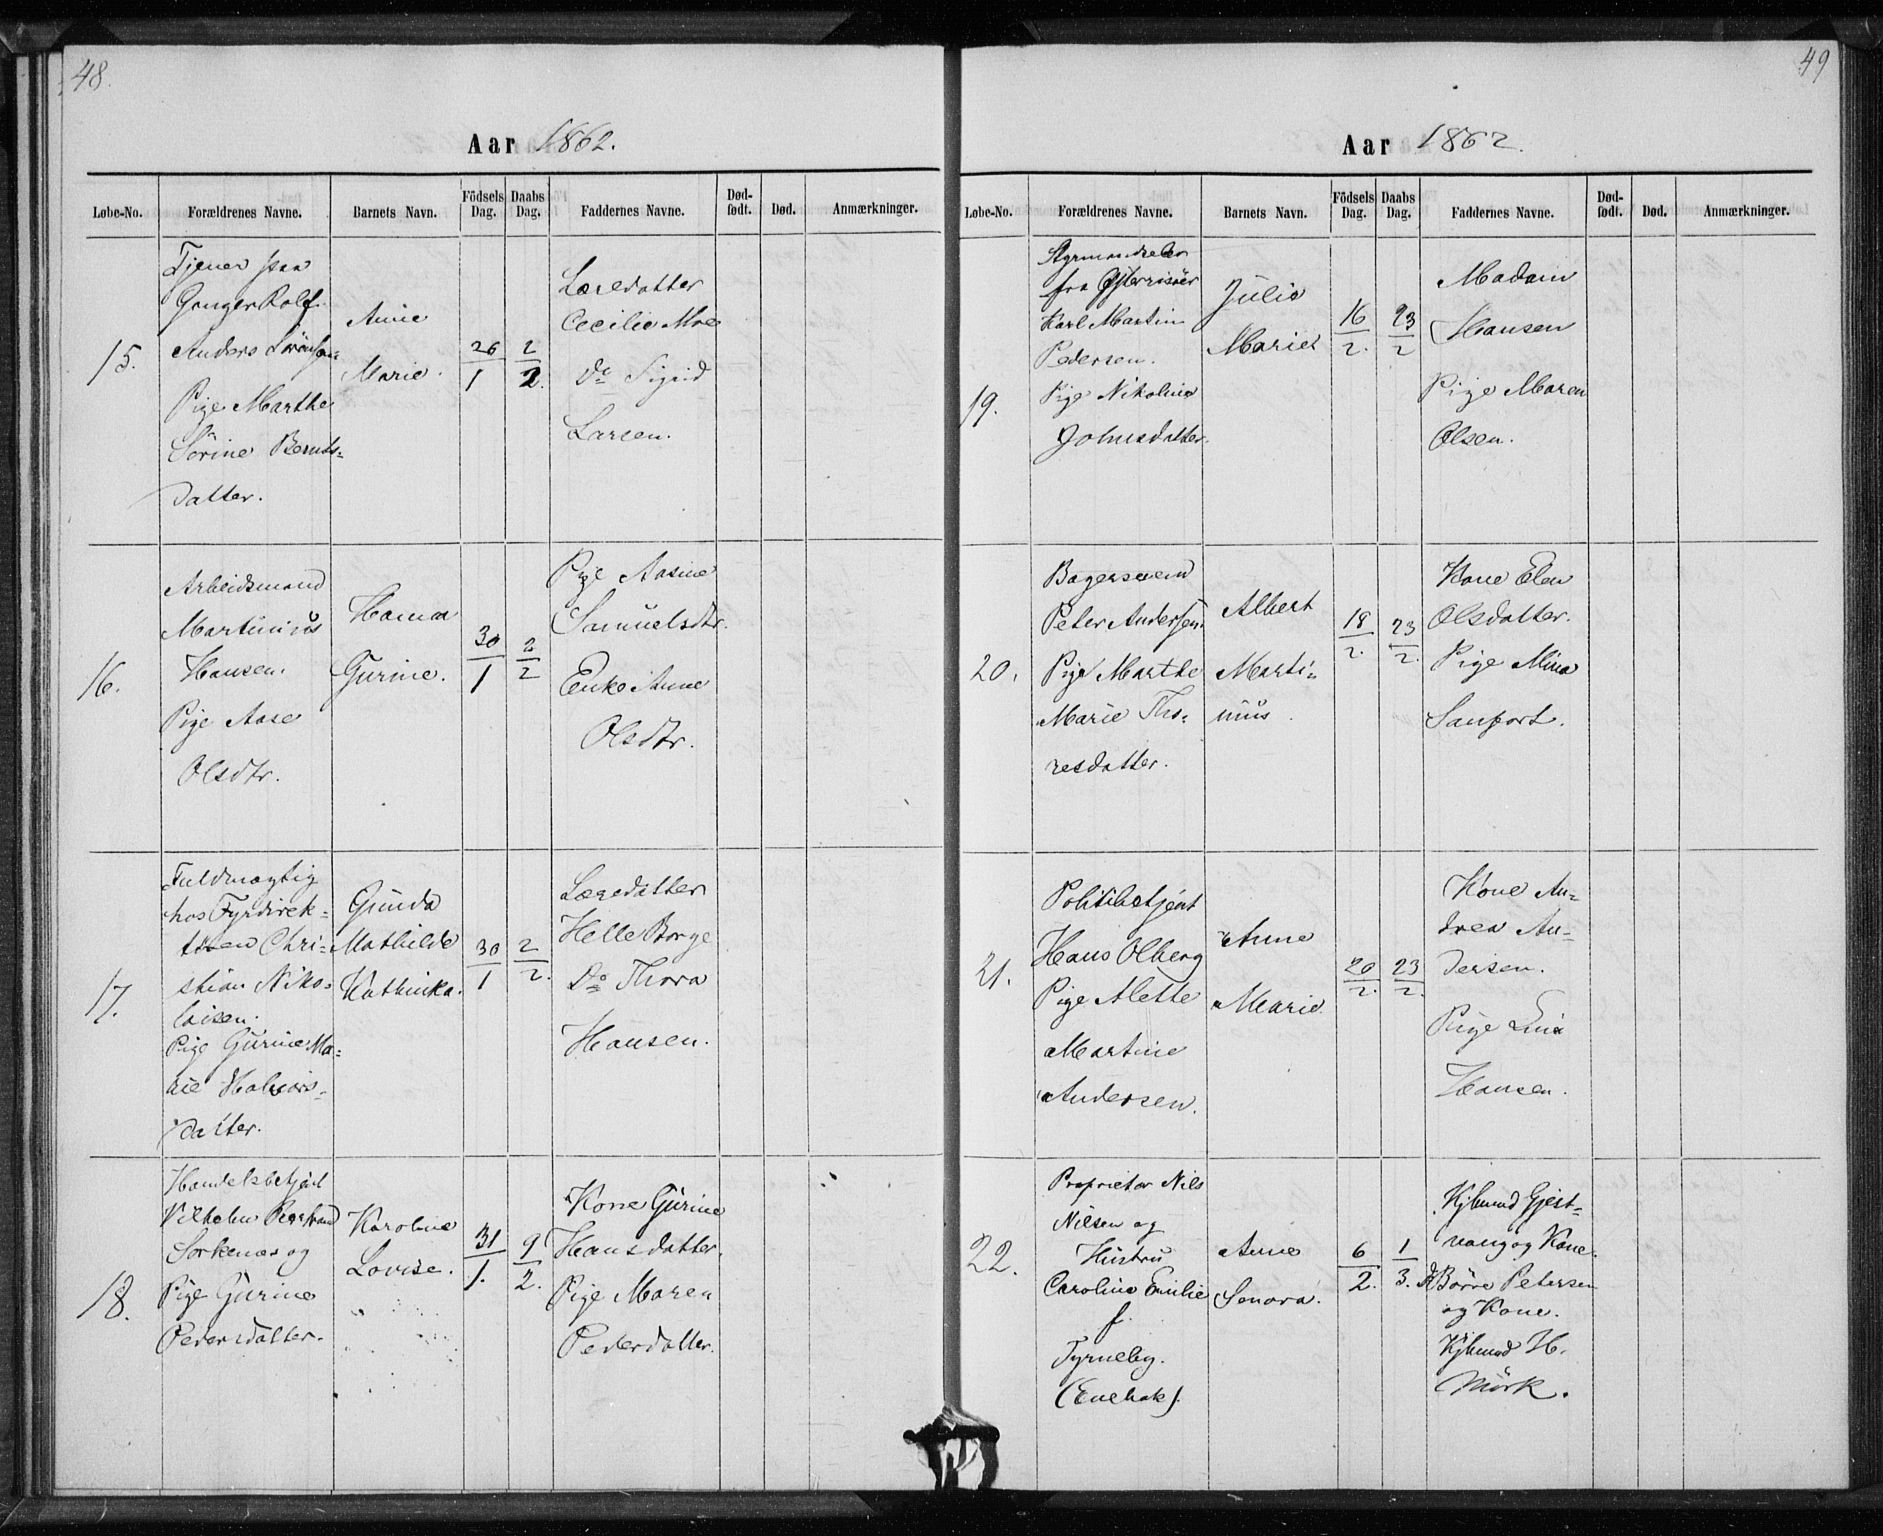 48.
Aar 1862.
Løbe-No. Forældrenes Navne. Barnets Navn. Födsels Dag. Daabs Dag. Faddernes Navne. Død-födt. Død. Anmærkninger.
15.
Tjener paa
Ganger Rolf
Anders Sörensen
Pige Marthe
Sörine Bernts=
datter.
Anne
Marie.
26/1
2/2.
Læredatter
Cecilie Moe
Do Sigrid
Larsen.
16.
Arbeidsmand
Martinius
Hansen.
Pige Aase
Olsdtr.
Hanna
Gurine.
30/1
2/2
Pige Aasine
Samuelsdtr.
Enke Anne
Olsdtr.
17.
Fuldmægtig
hos Fyrdirek=
tören Chri=
stian Niko=
laisen.
Pige Gurine Ma=
rie Halvors=
datter.
Gunda
Mathilde
Kathinka.
30/1
2/2.
Læredatter
Helle Borge
Do Thora
Hansen.
18.
Handelsbetjent
Vilhelm
Sorkenæs og
Pige Gurine
Pedersdatter.
Karoline
Lovise.
31/1.
9/2.
Kone Gurine
Hansdatter.
Pige Maren
Pedersdatter.
49
Aar 1862.
Løbe-No. Forældrenes Navne. Barnets Navn. Födsels Dag. Daabs Dag. Faddernes Navne. Død-födt. Død. Anmærkninger.
19.
fra Østerrisöer
Karl Martin
Pedersen.
Pige Nikoline
Johnsdatter.
Julie
Marie
16/2.
23/2
Madam
Hansen
Pige Maren
Olsen.
20.
Bagersvend
Peter Andersen.
Pige Marthe
Marie Tho=
resdatter.
Albert
Marti=
nius.
18/2.
23/2.
Kone Elen
Olsdatter.
Pige Mina
Sanfort.
21.
Politibetjent
Hans Olberg
Pige Alette
Martine
Andersen.
Anne
Marie.
20/2.
23/2.
Kone An=
drea An=
dersen.
Pige Lina
Hansen.
22.
Proprietær Nils
Nilsen og
Hustru
Caroline Emilie
f.
Tyrneby.
(Enebak).
Anne
Senora.
6/2.
1/3.
Kjbmnd Gjest=
vang og Kone.
Börre Petersen
og Kone.
Kjbmnd H.
Mörk.